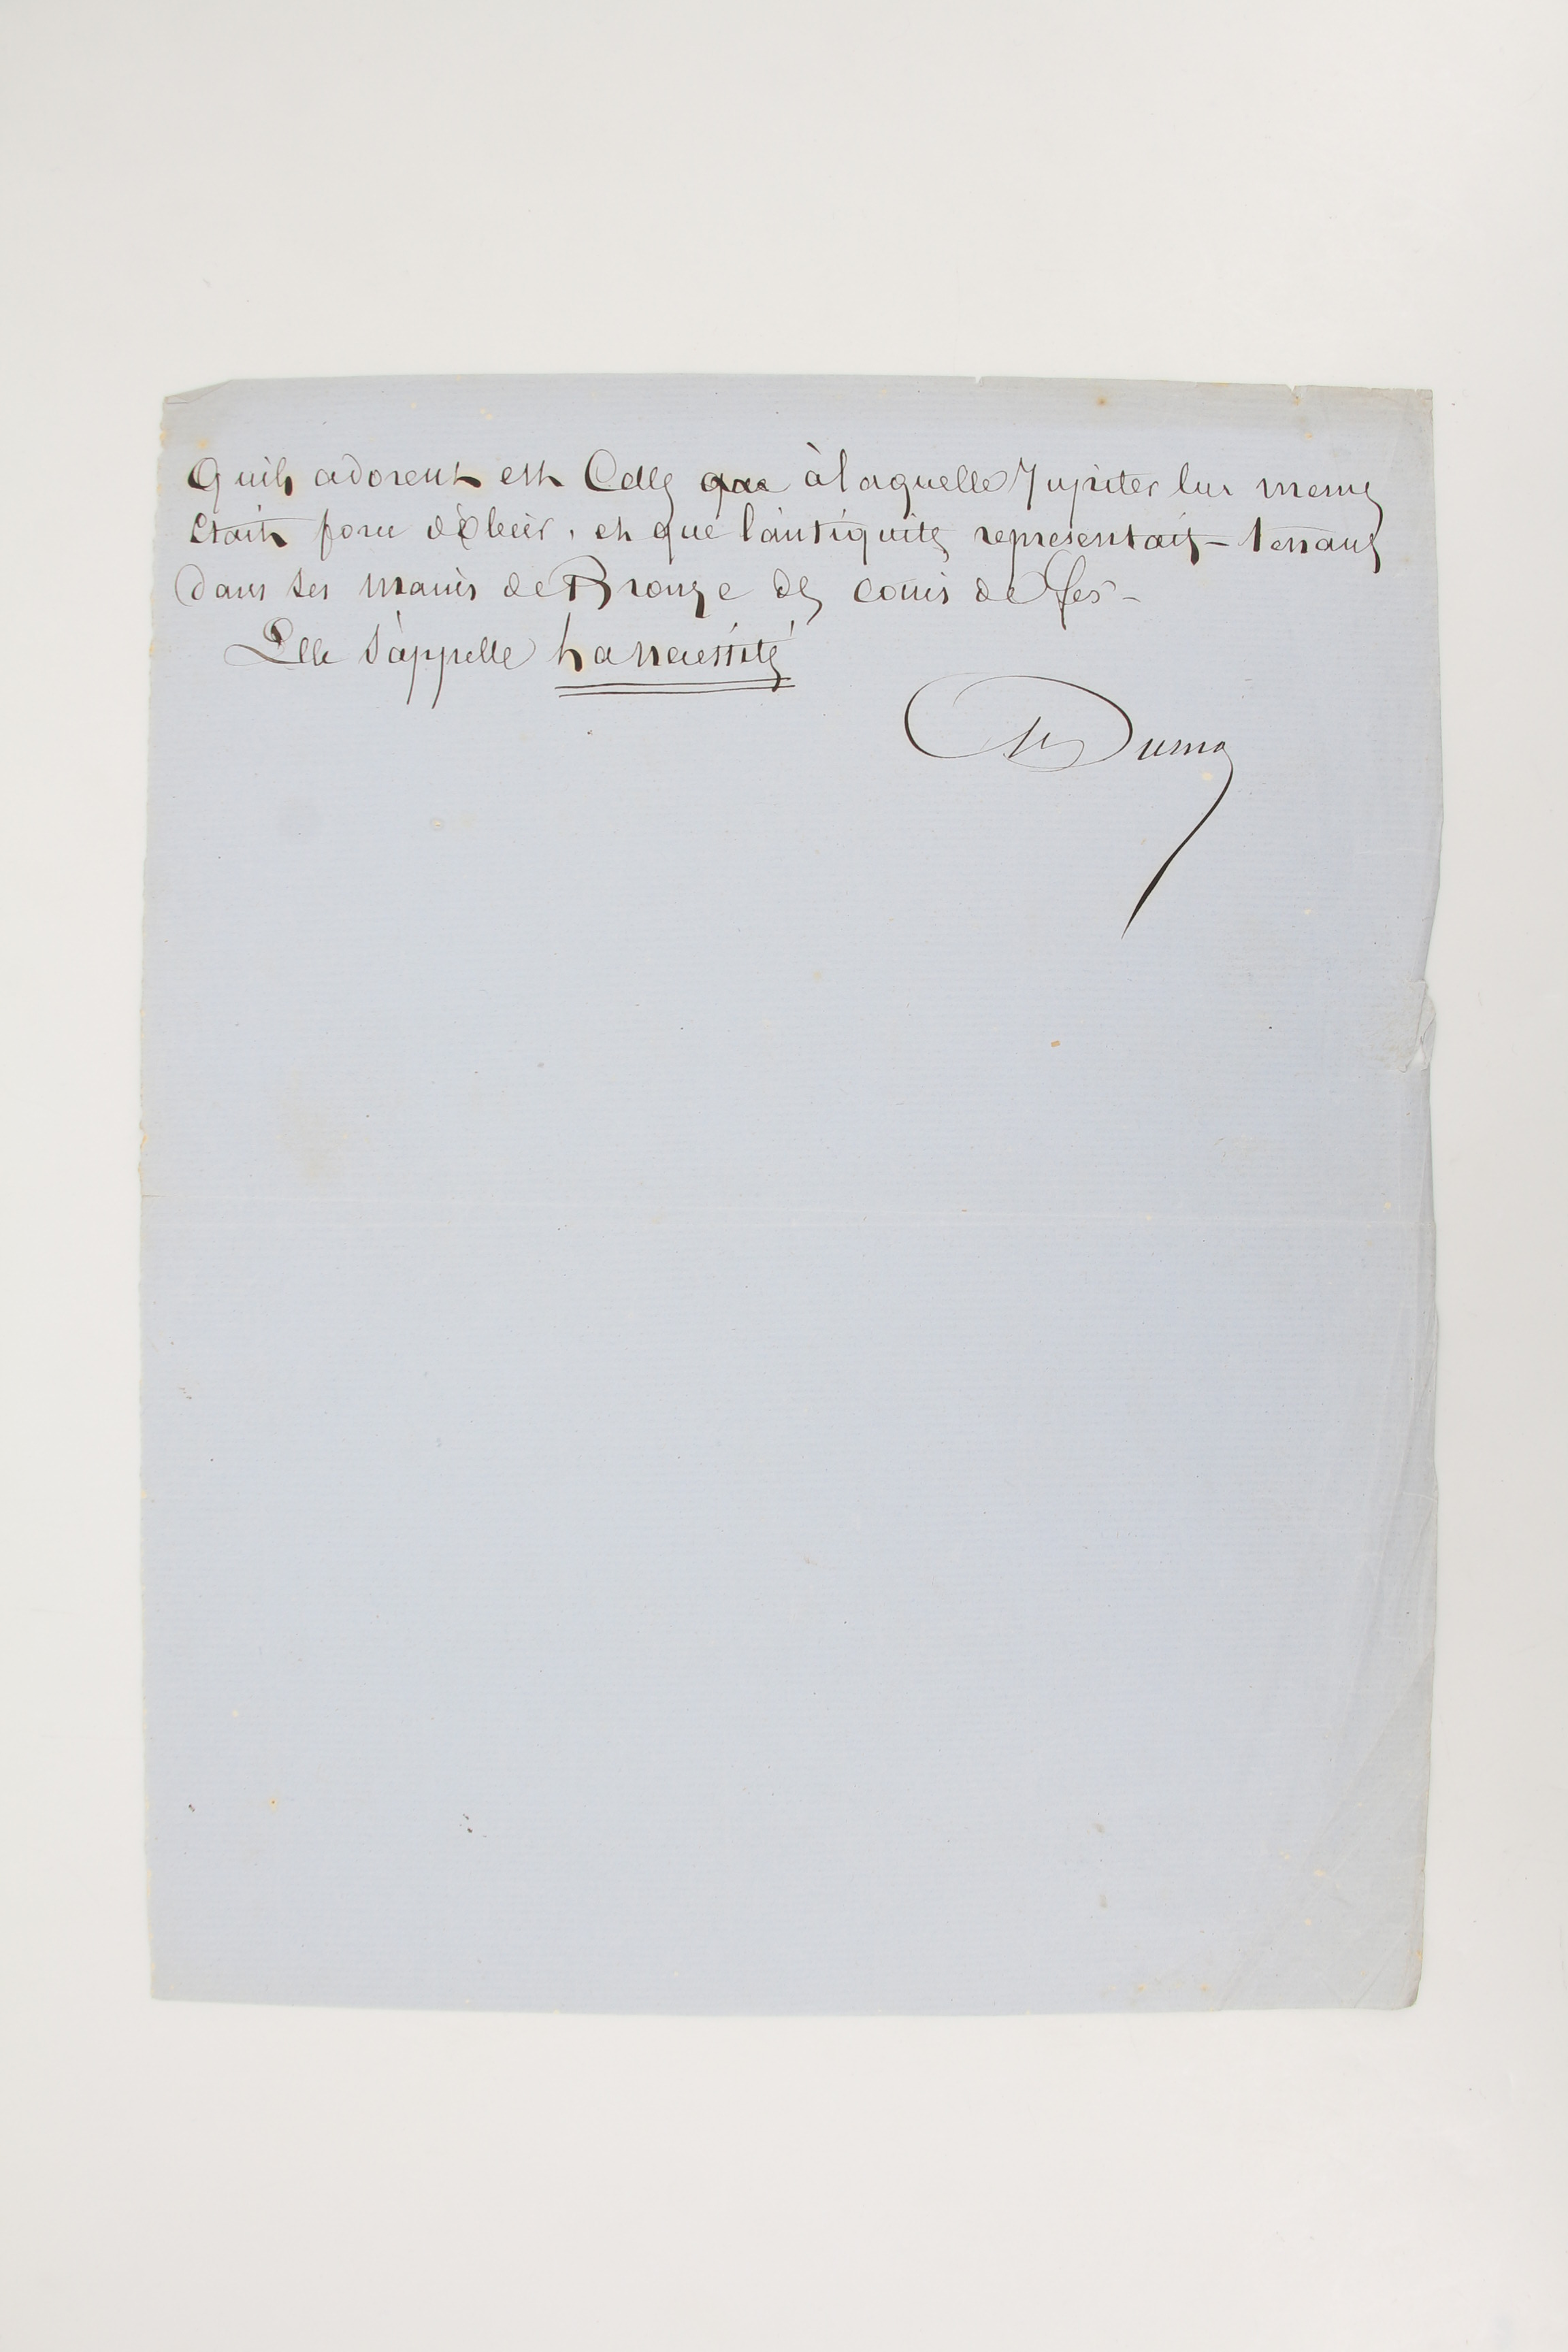 Quils adorent est Celle que à laquelle Jupiter lui meme
était forcé d'obeir, et que l'antiquité representait – tenant
dans ses mains de Bronze des coins de fer –
Elle s'appelle La necessité
Al Dumas